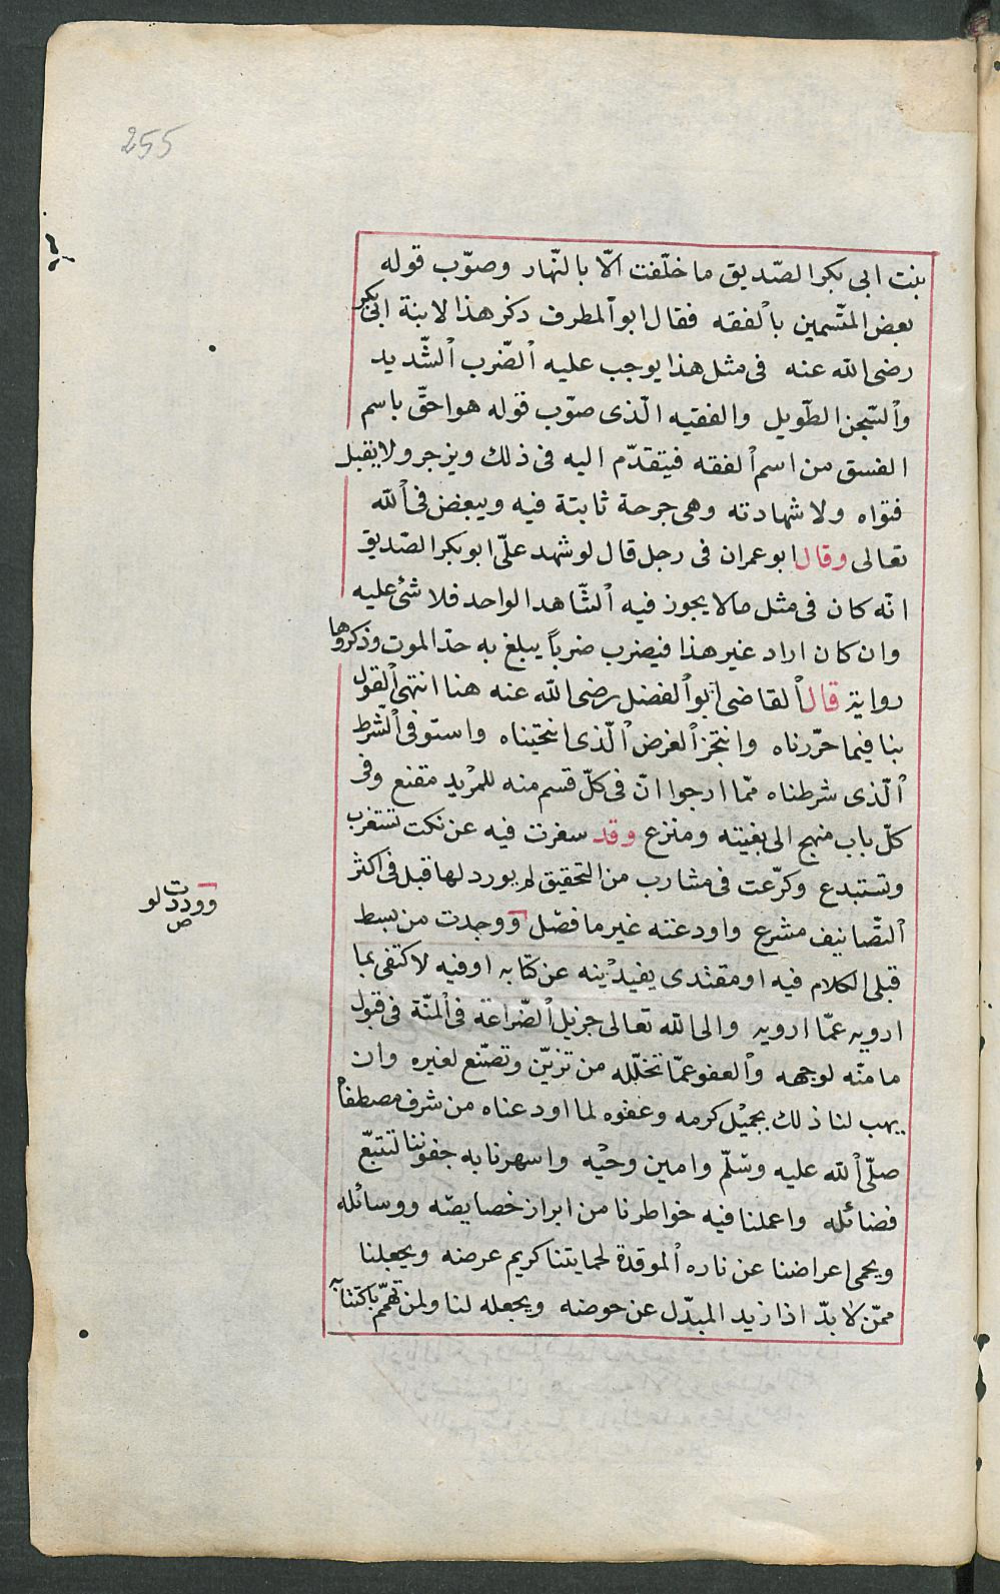 255
بنت ابى بكر الصّديق ما خلّفت الّا بالنّهار وصوّب قوله
بعض المتّسمين بالفقه فقال ابو المطرف ذكر هذا لابنة ابى بكر
رضى الله عنه فى مثل هذا يوجب عليه الضّرب الشّديد
والسّجن الطّويل والفقيه الّذى صوّب قوله هو احقّ باسم
الفسق من اسم الفقه فيتقدّم اليه فى ذلك ويزجر ولا يقبل
فتواه ولا شهادته وهى جرحة ثابتة فيه ويبغض فى الله
تعالى وقال ابو عمران فى رجل قال لو شهد علىّ ابو بكر الصّديق
انّه كان فى مثل ما لا يجوز فيه الشّاهد الواحد فلا شئ عليه
وان كان اراد غير هذا فيضرب ضرباً يبلغ به حدّ الموت وذكروها
رواية قال القاضى ابو الفضل رضى الله عنه هنا انتهى القول
بنا فيما حرّرناه وانتجز الغرض الّذى انتحيناه واستوفى الشّرط
الّذى شرطناه ممّا ارجوا انّ فى كلّ قسم منه للمريد مقنع وفى
كلّ باب منهج الى بغيته ومنزع وقد سفرت فيه عن نكت تستغرب
وتستبدع وكرّعت فى مشارب من التحقيق لم يورد لها قبل فى اكثر
التّصانيف مشرع واودعته غير ما فصّل ووجدت من بسط
وودت لو
ص
قبلى الكلام فيه او مقتدى يفيدنيه عن كتابه او فيه لاكتفى بما
ارويه عمّا ارويه والى الله تعالى جزيل الضّراعة فى المنّة فى قبول
ما منّه لوجهه والعفو عمّا تخلّله من تزيّن وتصنّع لغيره وان
يهب لنا ذلك بجميل كرمه وعفوه لما اودعناه من شرف مصطفاه
صلّى الله عليه وسلّم وامين وحيه واسهرنا به جفوننا لتتبّع
فضائله واعملنا فيه خواطرنا من ابراز خصايصه ووسائله
ويحمى اعراضنا عن ناره الموقدة لحمايتنا كريم عرضه ويجعلنا
ممّن لا بدّ اذا زيد المبدّل عن حوضه ويجعله لنا ولمن تهمّم باكتتابه